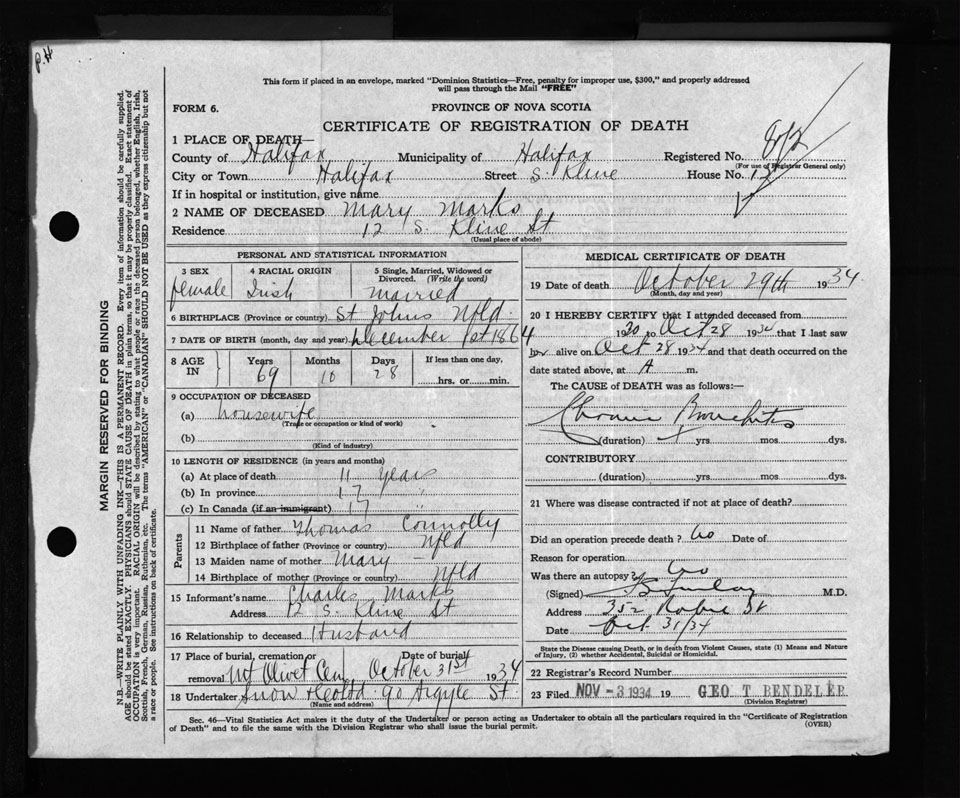 P.H
This form if placed in an envelope, marked "Dominion Statistics—Free, penalty for improper use, $300," and properly addressed
will pass through the Mail "FREE"
FORM 6.
PROVINCE OF NOVA SCOTIA
CERTIFICATE OF REGISTRATION OF DEATH
1 PLACE OF DEATH—
County of Halifax Municipality of Halifax Registered No. 872
(For use of Registrar General only)
City or Town Halifax Street S. Kline House No. 12
If in hospital or institution, give name
2 NAME OF DECEASED Mary Marks
Residence 12 S. Kline St
(Usual place of abode)
PERSONAL AND STATISTICAL INFORMATION
3 SEX 4 RACIAL ORIGIN 5 Single, Married, Widowed or
Divorced. (Write the word)
female Irish Married
6 BIRTHPLACE (Province or country) St Johns Nfld
7 DATE OF BIRTH (month, day and year) December 1st 1864
8 AGE IN Years Months Days If less than one day,
69 10 28 hrs. or min.
9 OCCUPATION OF DECEASED
(a) housewife
(Trade or occupation or kind of work)
(b)
(Kind of industry)
10 LENGTH OF RESIDENCE (in years and months)
(a) At place of death 11 years
(b) In province 17 "
(c) In Canada (if an immigrant) 17
Parents
11 Name of father Thomas Connolly
12 Birthplace of father (Province or country) Nfld
13 Maiden name of mother Mary —
14 Birthplace of mother (Province or country) Nfld
15 Informant's name Charles Marks
Address 12 S. Kline St
16 Relationship to deceased Husband
17 Place of burial, cremation or removal Date of burial
Mt Olivet Cem October 31st 1934
18 Undertaker Snow & Co Ltd 90 Argyle St.
(Name and address)
MEDICAL CERTIFICATE OF DEATH
19 Date of death October 29th 1934
(Month, day and year)
20 I HEREBY CERTIFY that I attended deceased from
1930 to Oct 28 1934 that I last saw
her alive on Oct 28 1934 and that death occurred on the
date stated above, at A m.
The CAUSE OF DEATH was as follows:
Chronic Bronchitis
(duration) yrs. mos. dys.
CONTRIBUTORY
(duration) yrs. mos. dys.
21 Where was disease contracted if not at place of death?
Did an operation precede death? No Date of
Reason for operation
Was there an autopsy? No
(Signed) M.D.
Address 352 Robie St
Date Oct. 31/34
State the Disease causing Death, or in death from Violent Causes, state (1) Means and Nature
of Injury, (2) whether Accidental, Suicidal or Homicidal.
22 Registrar's Record Number
23 Filed NOV -3 1934 19 GEO T. BENDELIER
(Division Registrar)
Sec. 46—Vital Statistics Act makes it the duty of the Undertaker or person acting as Undertaker to obtain all the particulars required in the "Certificate of Registration
of Death" and to file the same with the Division Registrar who shall issue the burial permit. (OVER)
MARGIN RESERVED FOR BINDING
N.B.—WRITE PLAINLY WITH UNFADING INK—THIS IS A PERMANENT RECORD. Every item of information should be carefully supplied.
AGE should be stated EXACTLY. PHYSICIANS should STATE CAUSE OF DEATH in plain terms, so that it may be properly classified. Exact statement of
OCCUPATION is very important. RACIAL ORIGIN will be described by stating to what people or race the deceased person belonged, whether English, Irish,
Scottish, French, German, Russian, Ruthenian, etc. The terms "AMERICAN" or "CANADIAN" SHOULD NOT BE USED as they express citizenship but not
a race or people. See instructions on back of certificate.